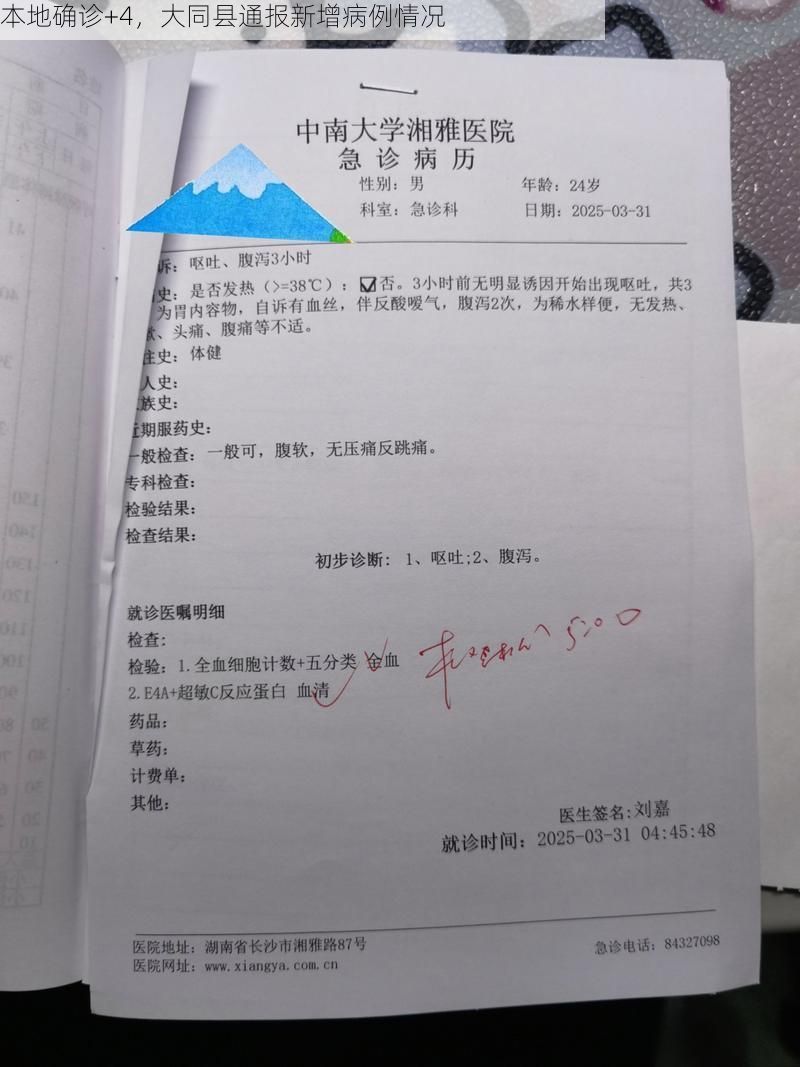 本地确诊+4，大同县通报新增病例情况
中南大学湘雅医院
急诊病历
性别：男 年龄：24岁
科室：急诊科 日期：2025-03-31
诉：呕吐、腹泻3小时
史：是否发热（>=38℃）：☑否。3小时前无明显诱因开始出现呕吐，共3
为胃内容物，自诉有血丝，伴反酸嗳气，腹泻2次，为稀水样便，无发热、
、头痛、腹痛等不适。
往史：体健
人史：
族史：
近期服药史：
一般检查：一般可，腹软，无压痛反跳痛。
专科检查：
检验结果：
检查结果：
初步诊断： 1、呕吐;2、腹泻。
就诊医嘱明细
检查：
检验：1.全血细胞计数+五分类 全血
2.E4A+超敏C反应蛋白 血清
5:00
药品：
草药：
计费单：
其他：
医生签名:刘嘉
就诊时间：2025-03-31 04:45:48
医院地址：湖南省长沙市湘雅路87号 急诊电话：84327098
医院网址：www.xiangya.com.cn